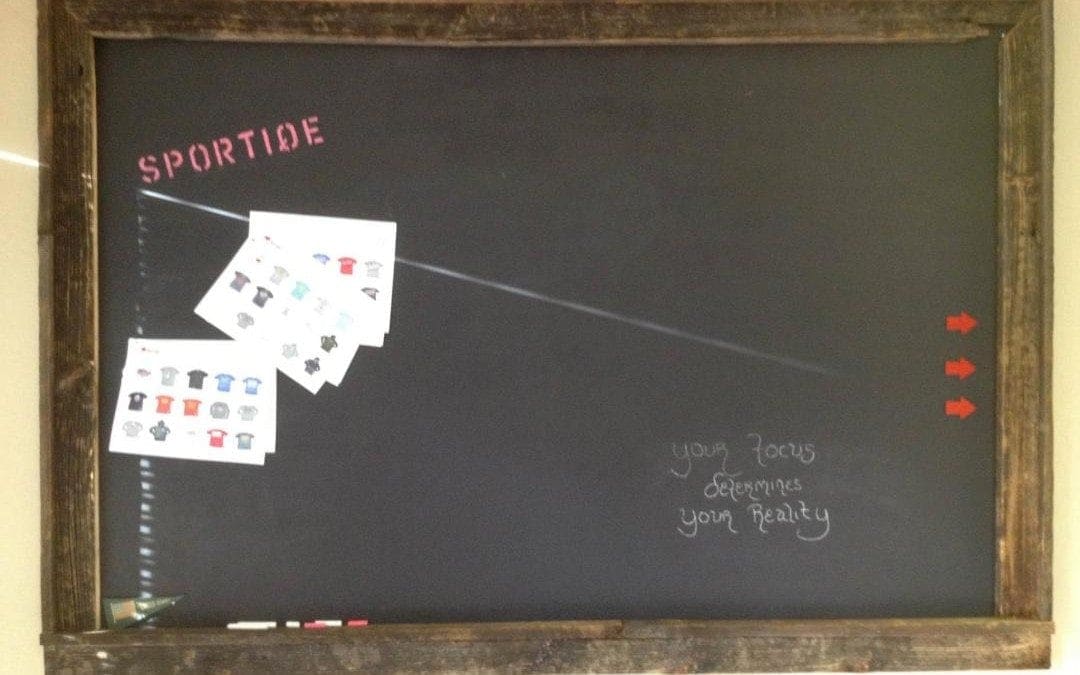 SPORTIQE
your focus
determines
your Reality